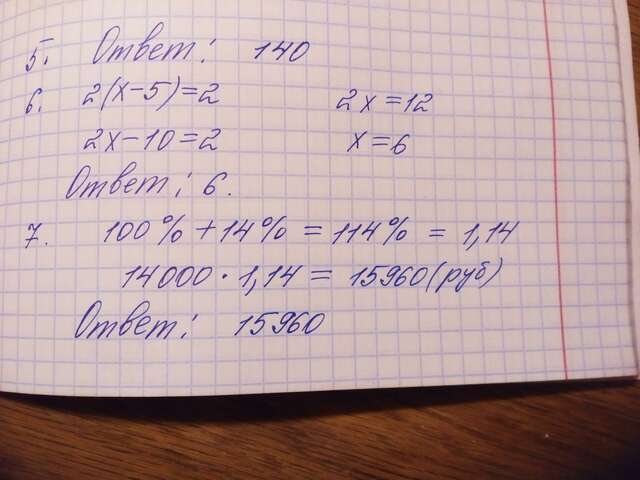 5. Ответ: 140
6. 2(x-5)=2 2x=12
2x-10=2 x=6
Ответ: 6.
7. 100% + 14% = 114% = 1,14
14000 · 1,14 = 15960 (руб)
Ответ: 15960